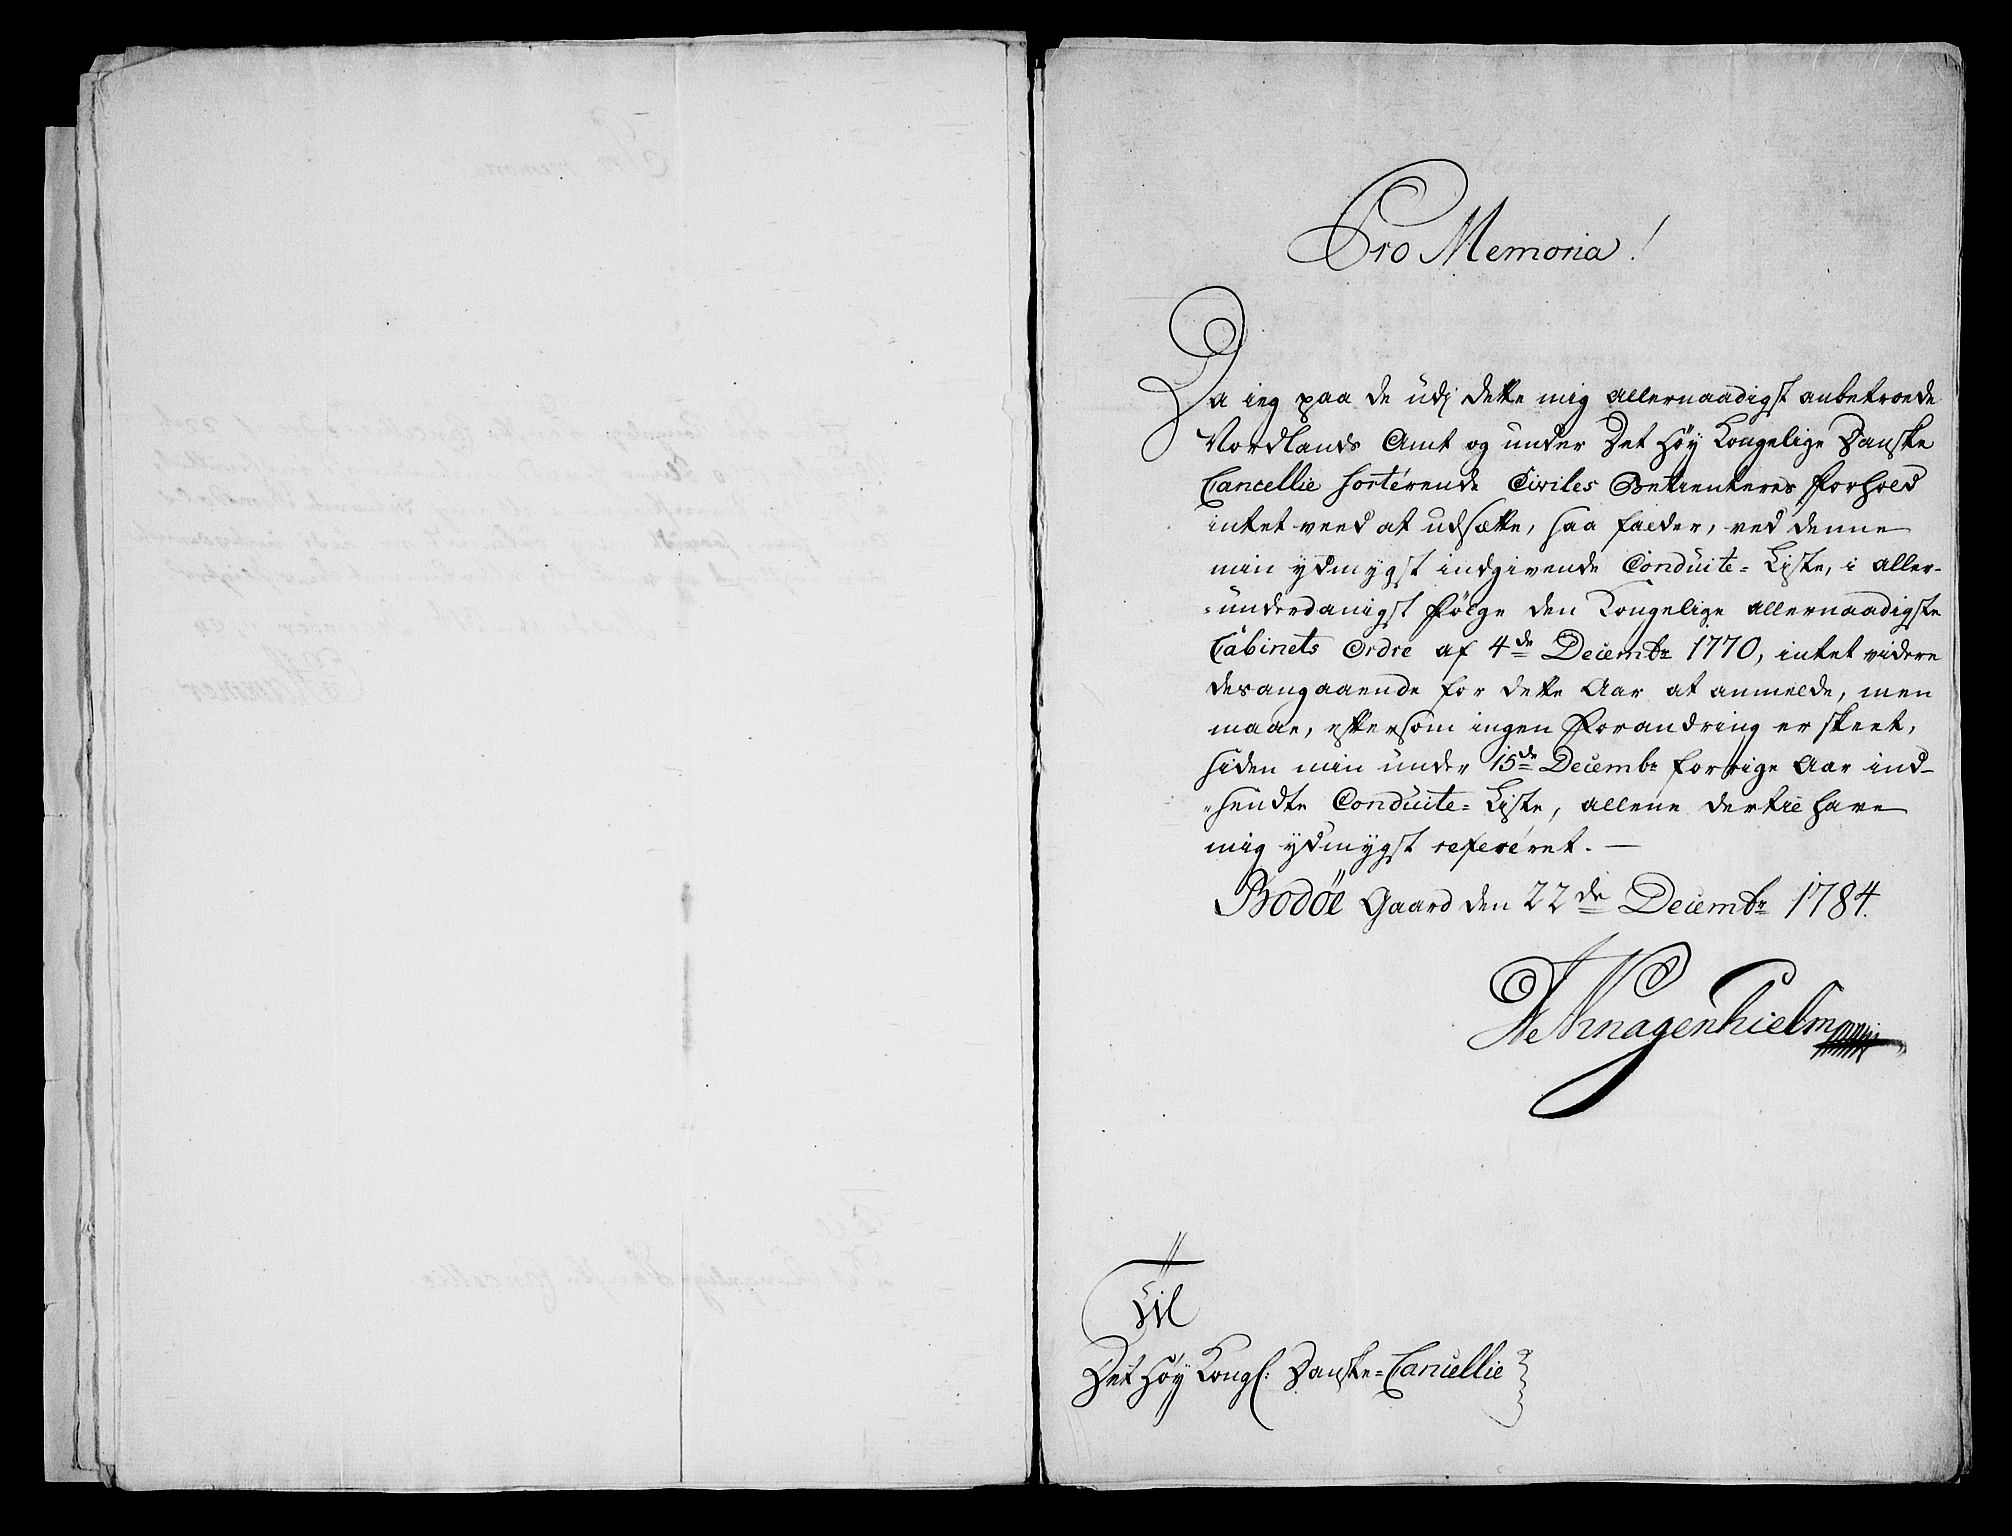 Pro Memoria!
Da ieg paa de udj dette mig allernaadigst anbetroede
Nordlands Amt og under Det Høy Kongelige Danske
Cancellie sorterende Civiles Betienteres Forhold
intet veed at udsætte, saa falder, ved denne
min ydmygst indgivende Conduite= Liste, i aller-
=underdanigst Følge den Kongelige allernaadigste
Cabinets Ordre af 4de Decembr 1770, intet videre
desangaaende for dette Aar at anmelde, men
maae, eftersom ingen Forandring er skeet,
siden min under 15de Decembr forrige Aar ind-
=sendte Conduite= Liste, allene dertil have
mig ydmygst refereret. —
Bodöe Gaard den 22de Decembr 1784.
Knagenhielm
Til
Det Høy Kongl: Danske= Cancellie